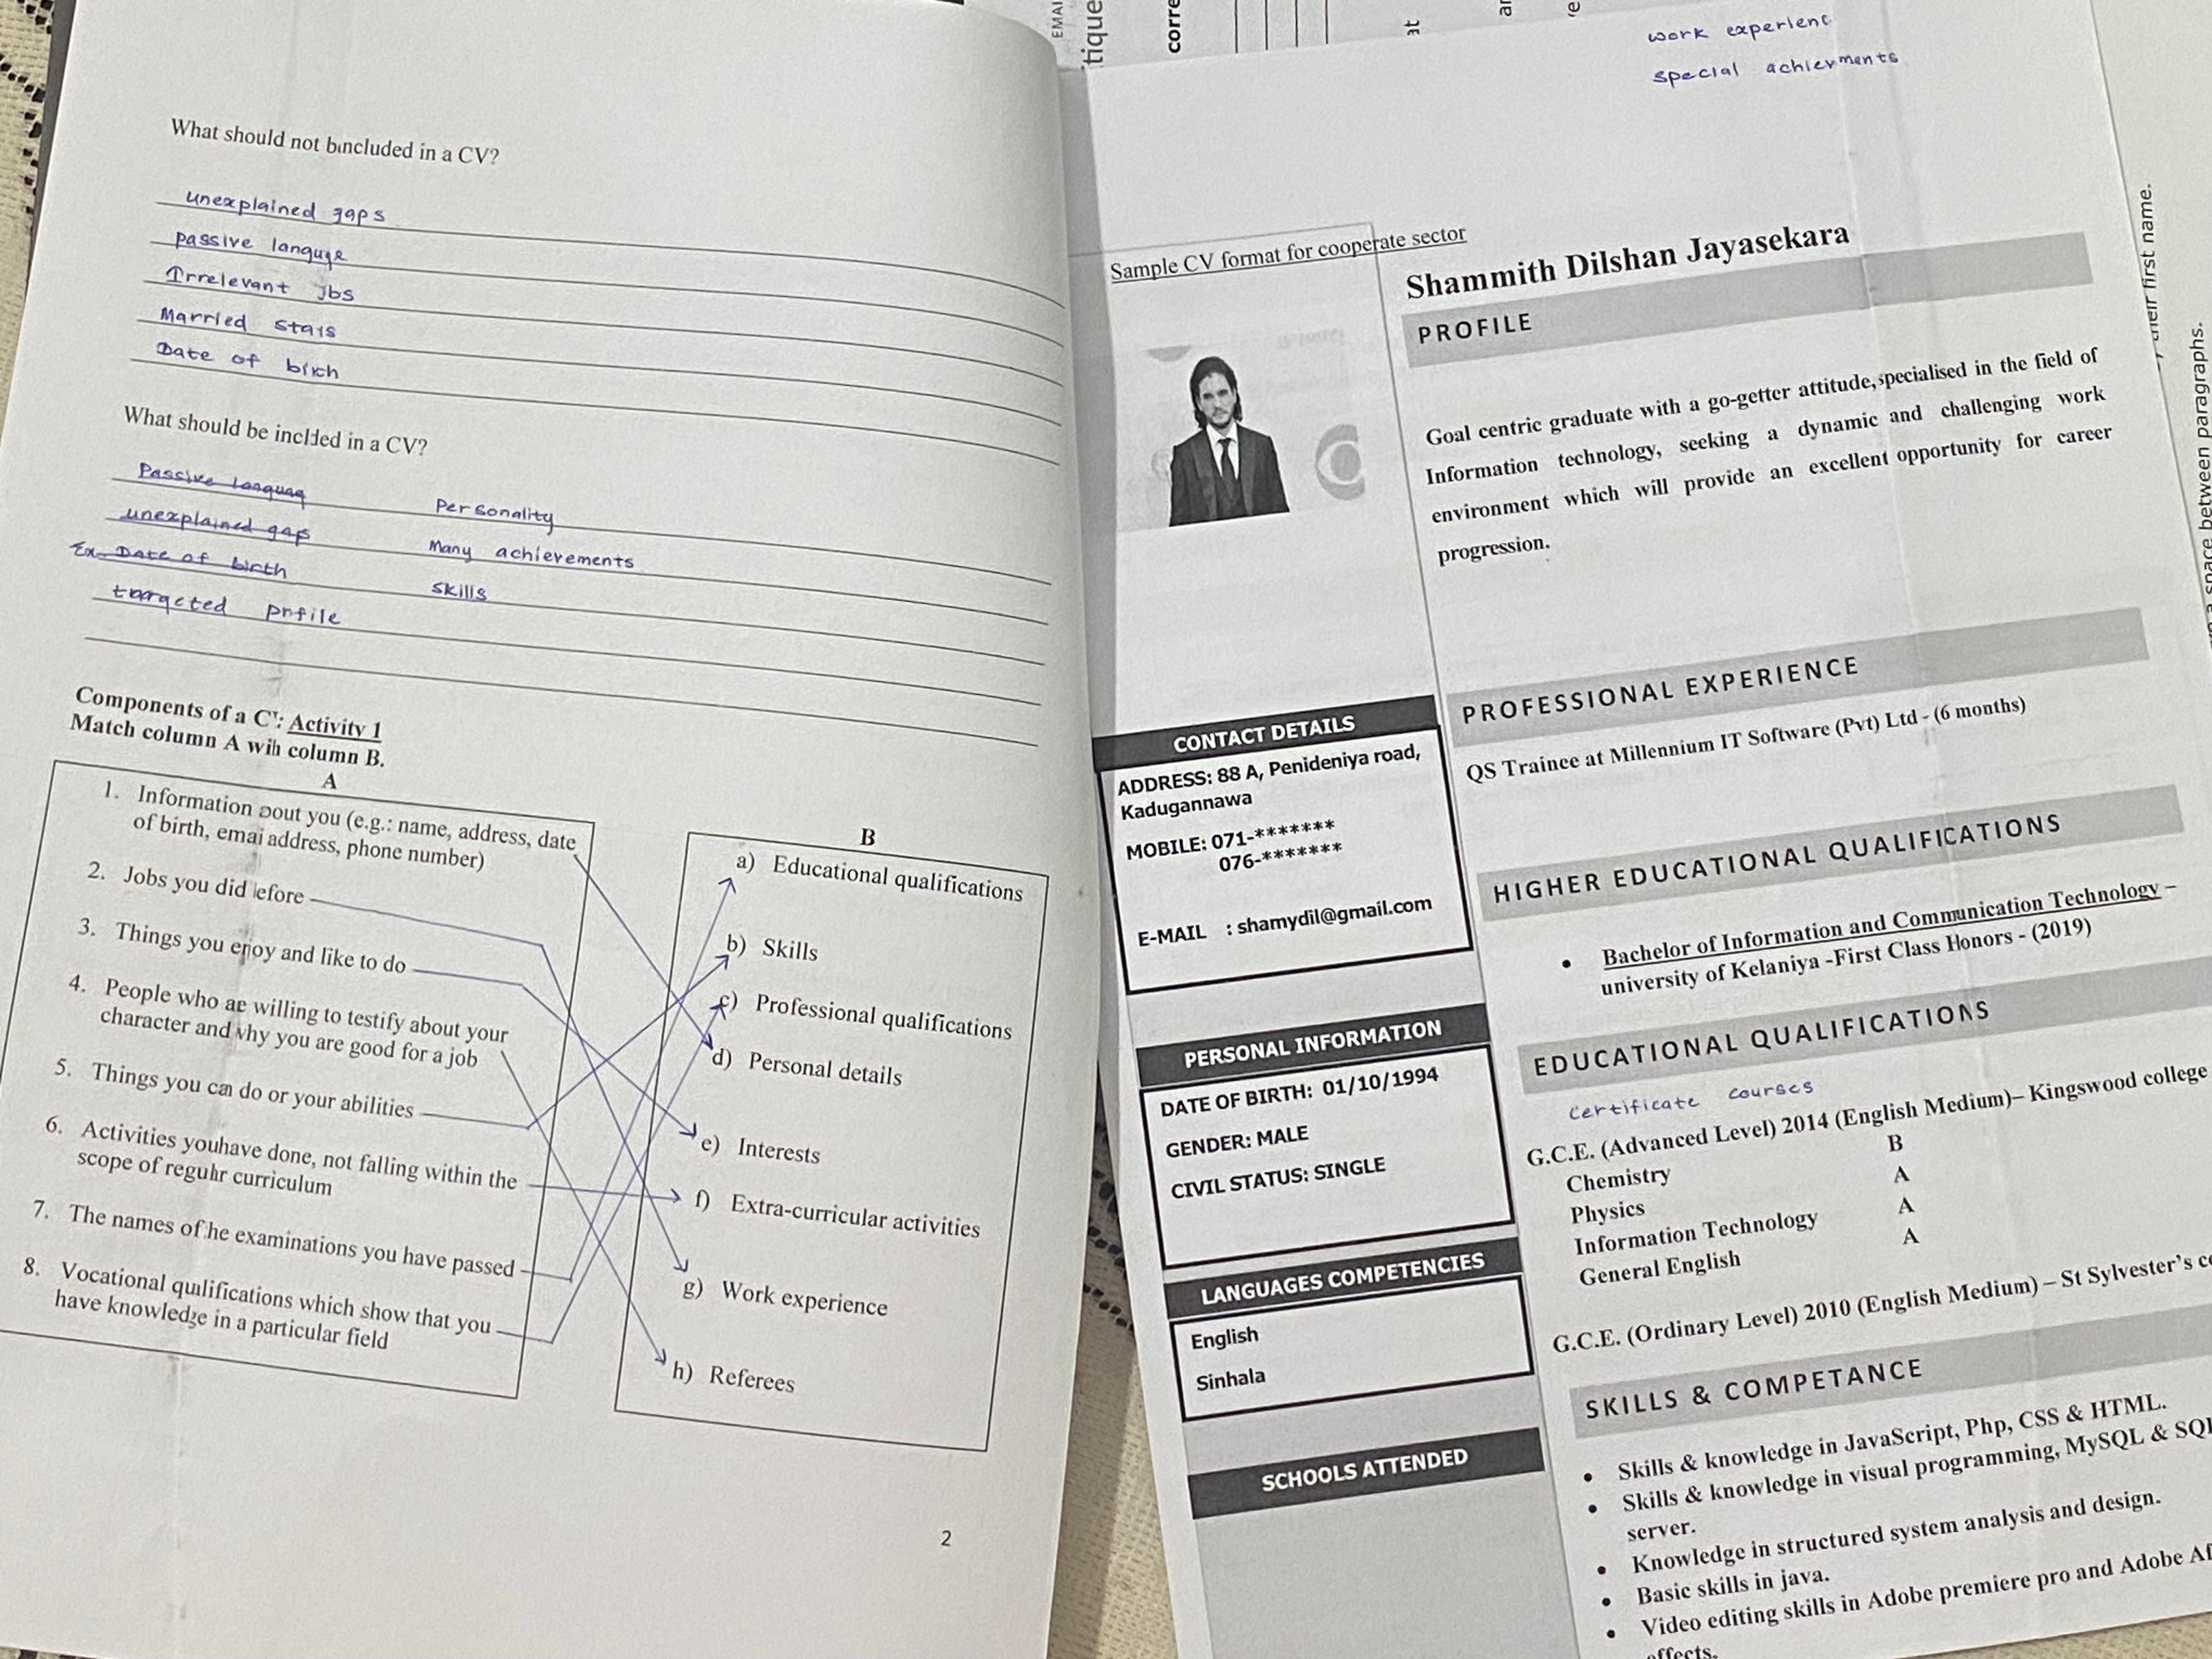 What should not bincluded in a CV?
unexplained gaps
passive languge
Irrelevant jbs
Married stats
Date of birth
What should be inclded in a CV?
Passive languag
unexplained gap
Ex Date of birth
targeted prfile
Personality
Many achievements
skills
Components of a C: Activity 1
Match column A wih column B.
A
1. Information bout you (e.g.: name, address, date
of birth, emai address, phone number)
2. Jobs you did efore
3. Things you enjoy and like to do
4. People who ae willing to testify about your
character and why you are good for a job
5. Things you can do or your abilities
6. Activities youhave done, not falling within the
scope of regulr curriculum
7. The names of he examinations you have passed
8. Vocational qulifications which show that you
have knowledge in a particular field
B
a) Educational qualifications
b) Skills
c) Professional qualifications
d) Personal details
e) Interests
f) Extra-curricular activities
g) Work experience
h) Referees
2
EMAI
tique
corre
at
ar
work experienc
special achievments
Sample CV format for cooperate sector
Shammith Dilshan Jayasekara
PROFILE
Goal centric graduate with a go-getter attitude,specialised in the field of
Information technology, seeking a dynamic and challenging work
environment which will provide an excellent opportunity for career
progression.
CONTACT DETAILS
ADDRESS: 88 A, Penideniya road,
Kadugannawa
MOBILE: 071-*******
076-*******
E-MAIL : shamydil@gmail.com
PERSONAL INFORMATION
DATE OF BIRTH: 01/10/1994
GENDER: MALE
CIVIL STATUS: SINGLE
LANGUAGES COMPETENCIES
English
Sinhala
SCHOOLS ATTENDED
PROFESSIONAL EXPERIENCE
QS Trainee at Millennium IT Software (Pvt) Ltd - (6 months)
HIGHER EDUCATIONAL QUALIFICATIONS
• Bachelor of Information and Communication Technology –
university of Kelaniya -First Class Honors - (2019)
EDUCATIONAL QUALIFICATIONS
certificate courses
G.C.E. (Advanced Level) 2014 (English Medium)– Kingswood college
Chemistry B
Physics A
Information Technology A
General English A
G.C.E. (Ordinary Level) 2010 (English Medium) – St Sylvester's c
SKILLS & COMPETANCE
• Skills & knowledge in JavaScript, Php, CSS & HTML.
• Skills & knowledge in visual programming, MySQL & SQL
server.
• Knowledge in structured system analysis and design.
• Basic skills in java.
• Video editing skills in Adobe premiere pro and Adobe Af
effects.
their first name.
a space between paragraphs.